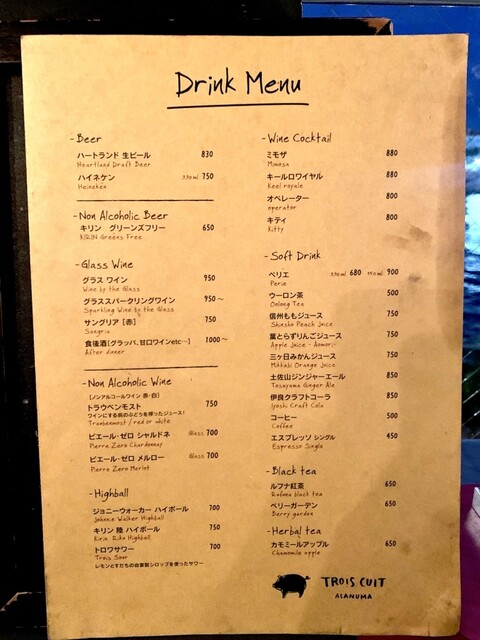 Drink Menu
-Beer
ハートランド 生ビール 830
Heartland Draft Beer
ハイネケン 330ml 750
Heineken
-Non Alcoholic Beer
キリン グリーンズフリー 650
KIRIN Greens Free
-Glass Wine
グラス ワイン 950
Wine by the Glass
グラススパークリングワイン 950~
Sparkling Wine by the Glass
サングリア [赤] 750
Sangria
食後酒[グラッパ、甘口ワインetc…] 1000~
After dinner
-Non Alcoholic Wine
[ノンアルコールワイン 赤・白]
トラウベンモスト 750
ワインにする前のぶどうを搾ったジュース!
Traubenmost / red or white
ピエール・ゼロ シャルドネ Glass 700
Pierre Zero Chardonnay
ピエール・ゼロ メルロー Glass 700
Pierre Zero Merlot
-Highball
ジョニーウォーカー ハイボール 700
Johnnie Walker Highball
キリン 陸 ハイボール 750
Kirin Riku Highball
トロワサワー 700
Trois Sour
レモンとすだちの自家製シロップを使ったサワー
-Wine Cocktail
ミモザ 880
Mimosa
キールロワイヤル 880
Keel royale
オペレーター 800
operator
キティ 800
Kitty
-Soft Drink
ペリエ 330ml 680 750ml 900
Perie
ウーロン茶 500
Oolong Tea
信州ももジュース 750
Shinshu Peach Juice
葉とらずりんごジュース 750
Apple Juice - Aomori-
三ヶ日みかんジュース 750
Mikkabi Orange Juice
土佐山ジンジャーエール 850
Tosayama Ginger Ale
伊良クラフトコーラ 850
Iyoshi Craft Cola
コーヒー 500
Coffee
エスプレッソ シングル 450
Espresso Single
-Black tea
ルフナ紅茶 650
Rufuna black tea
ベリーガーデン 650
Berry garden
-Herbal tea
カモミールアップル 650
Chamomile apple
TROIS CUIT
ACANUMA